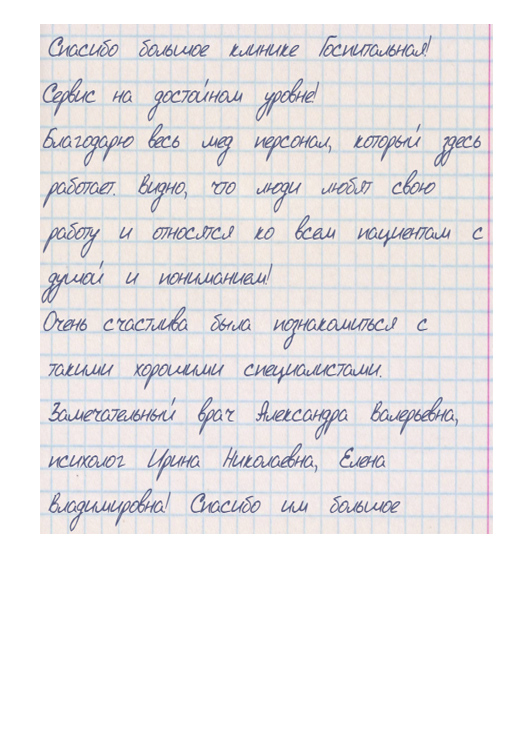 Спасибо большое клинике Госпитальная!
Сервис на достойном уровне!
Благодарю весь мед персонал, который здесь
работает. Видно, что люди любят свою
работу и относятся ко всем пациентам с
душой и пониманием!
Очень счастлива была познакомиться с
такими хорошими специалистами.
Замечательный врач Александра Валерьевна,
психолог Ирина Николаевна, Елена
Владимировна! Спасибо им большое